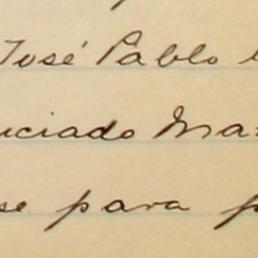 José Pablo
nciado Ma
se para p